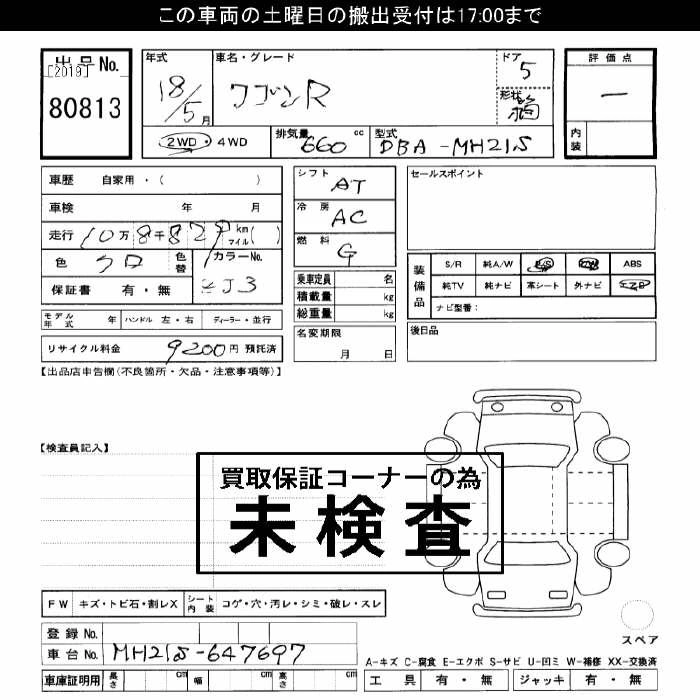 この車両の土曜日の搬出受付は17:00まで
出品No.
[2019]
80813
年式
18/5月
車名・グレード
ワゴンR
ドア
5
形状
評価点
—
内装
2WD・4WD
排気量
660 cc
型式
DBA-MH21S
車歴 自家用・( )
車検 年 月
走行 10万8千829 km マイル( )
色 クロ 色替
カラーNo.
ZJ3
保証書 有・無
シフト
AT
冷房
AC
燃料
G
乗車定員 名
積載量 kg
総重量 kg
セールスポイント
装備品
S/R 純A/W P/S P/W ABS
純TV 純ナビ 革シート 外ナビ エアB
ナビ型番:
モデル年式 年 ハンドル 左・右 ディーラー・並行
リサイクル料金 9200円 預託済
名変期限
月 日
後日品
【出品店申告欄(不良箇所・欠品・注意事項等)】
【検査員記入】
買取保証コーナーの為
未検査
FW キズ・トビ石・割レX シート内装 コゲ・穴・汚レ・シミ・破レ・スレ
登録No.
車台No. MH21S-647697
車庫証明用 長さ cm 幅 cm 高さ cm
スペア
A-キズ C-腐食 E-エクボ S-サビ U-凹ミ W-補修 XX-交換済
工具 有・無 ジャッキ 有・無